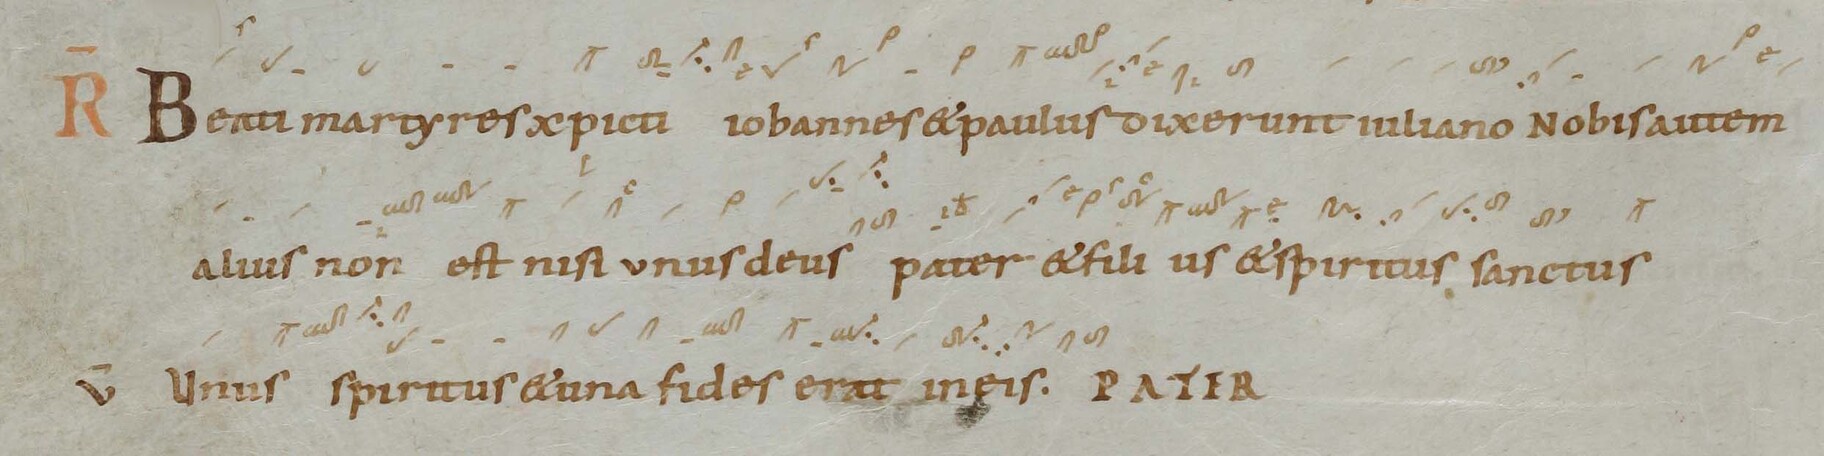 R̄ Beati martyres xpicti iohannes & paulus dixerunt iuliano Nobis autem
alius non est nisi unus deus pater & fili us & spiritus sanctus
v̄ Unus spiritus & una fides erat in eis. PATER